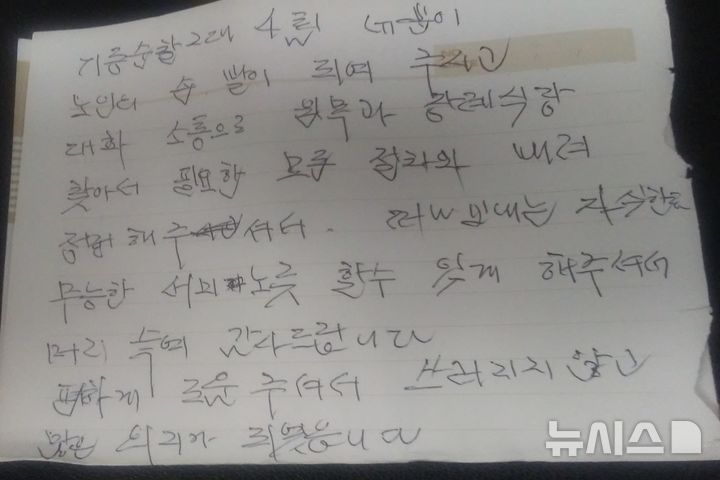 기동순찰2대 4팀 네분이
노인의 손 발이 되여 주시고
대화 소통으로 과 장례식장
찾아서 필요한 모든 절차와 내려
정리해주셔서. 떠나 보내는 자식한테
무능한 노릇 할수 있게 해주셔서
머리 숙여 감사드립니다
편하게 도운 주셔서 쓰러지지 않고
많은 의지가 되였습니다
뉴시스